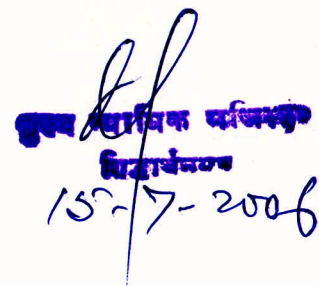 मुख्य न्यायिक मजिस्ट्रेट
सिद्धार्थनगर
15-7-2006